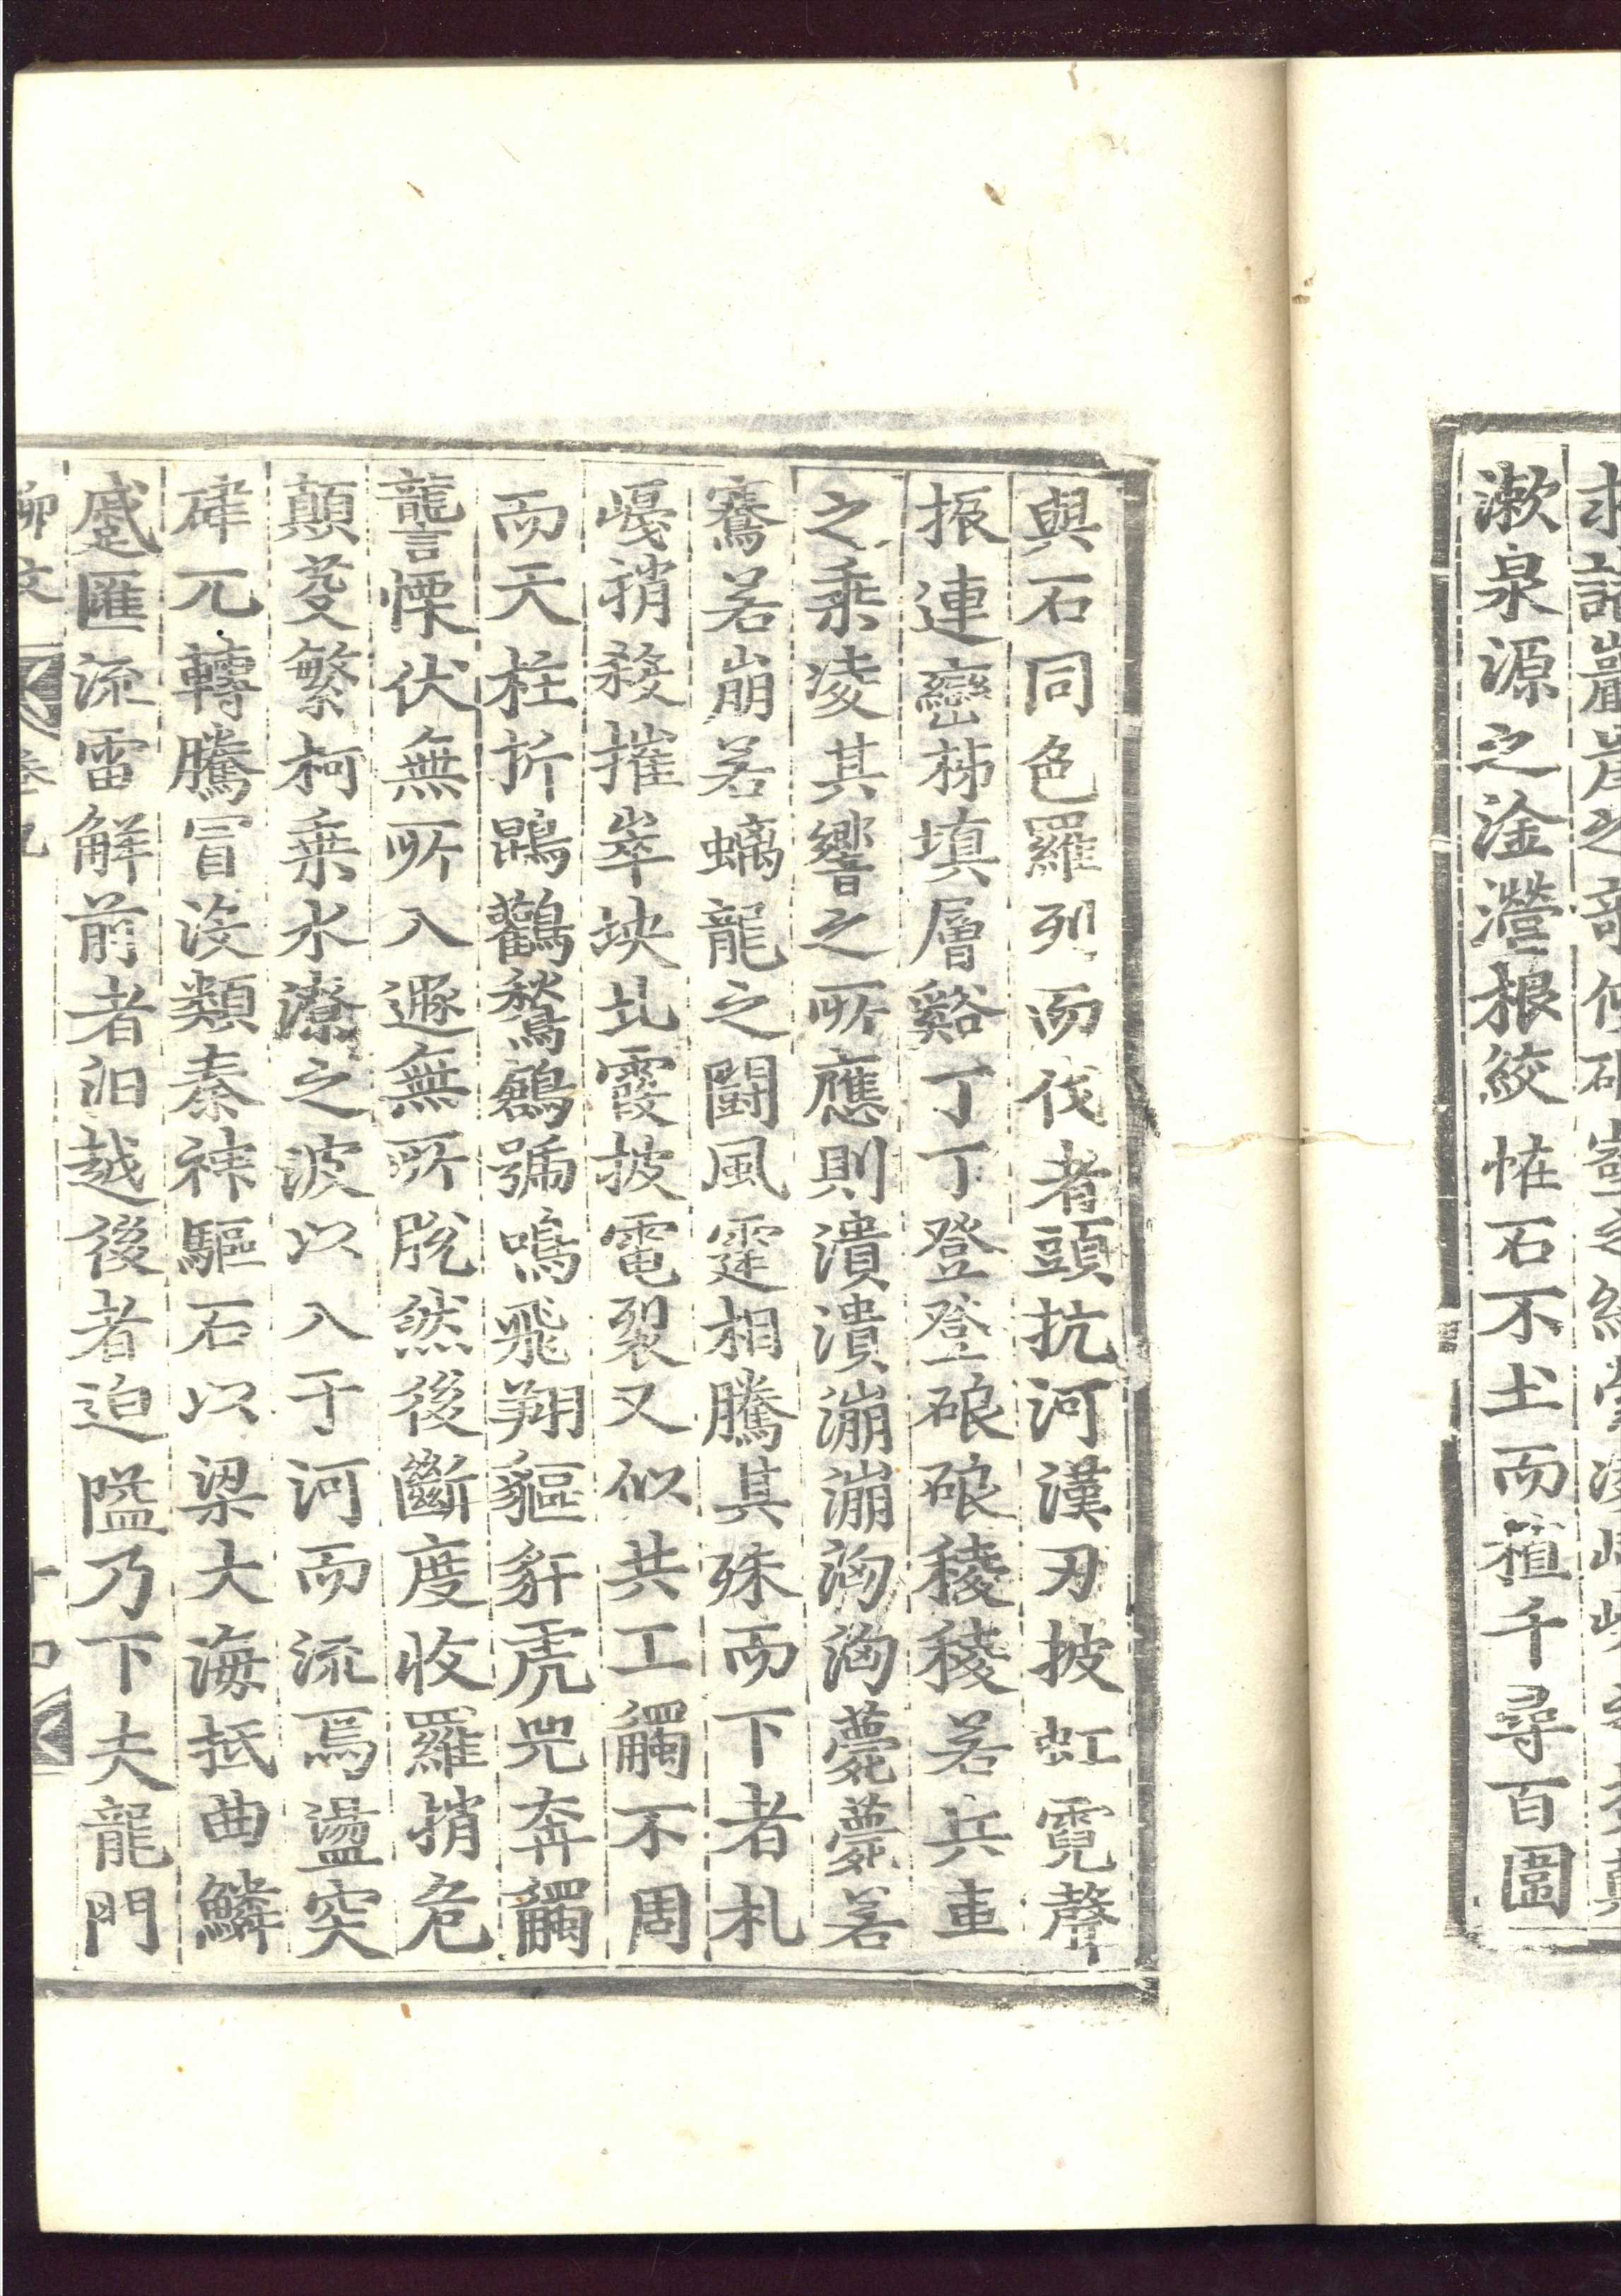 漱泉源之淦瀯根絞怪石不土而植千尋百圍
與石同色羅列而伐者頭抗河漢刃披虹霓聲
振連巒柿填層谿丁丁登登硠硠稜稜若兵車
之乘凌其響之所應則潰潰漰漰洶洶薨薨若
騫若崩若螭龍之鬭風霆相騰其殊而下者札
嵑捎殺摧崒坱圠霞披電裂又似共工觸不周
而天柱折鵾鸛鶖鶬號鳴飛翔貙豻虎兕奔觸
讋慄伏無所入遯無所脫然後斷度收羅捎危
顛芟繁柯乘水潦之波以入于河而流焉盪突
硉兀轉騰冒沒類秦神驅石以梁大海抵曲鱗
蹙匯流雷解前者汩越後者迫隘乃下夫龍門
柳文 卷九 十四